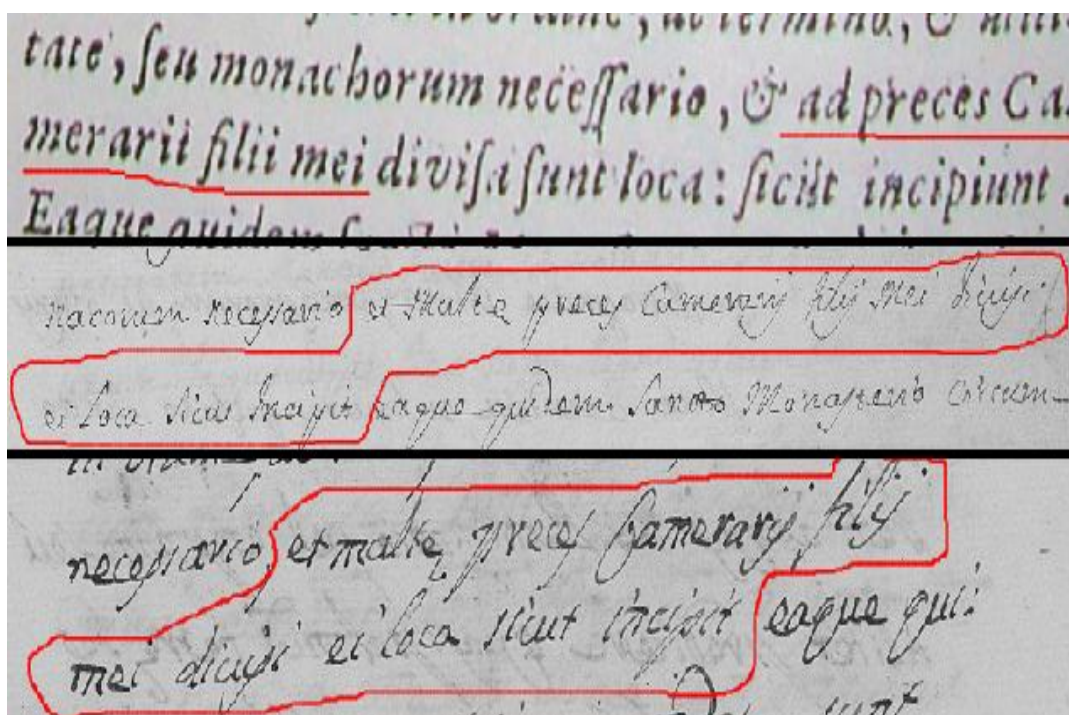 tate, ſeu monachorum neceſſario, & ad preces Ca-
merarii filii mei diviſa ſunt loca: ſicut incipiunt
Eaque quidem
nacorum necessario et Multe preces Camerarij filij Mei divisi
ei loca sicut Incipit eaque quidem Sancto Monasterio circum-
necessario, et malte preces Camerarij filij
mei divisi ei loca sicut incipit eaque qui:
sunt